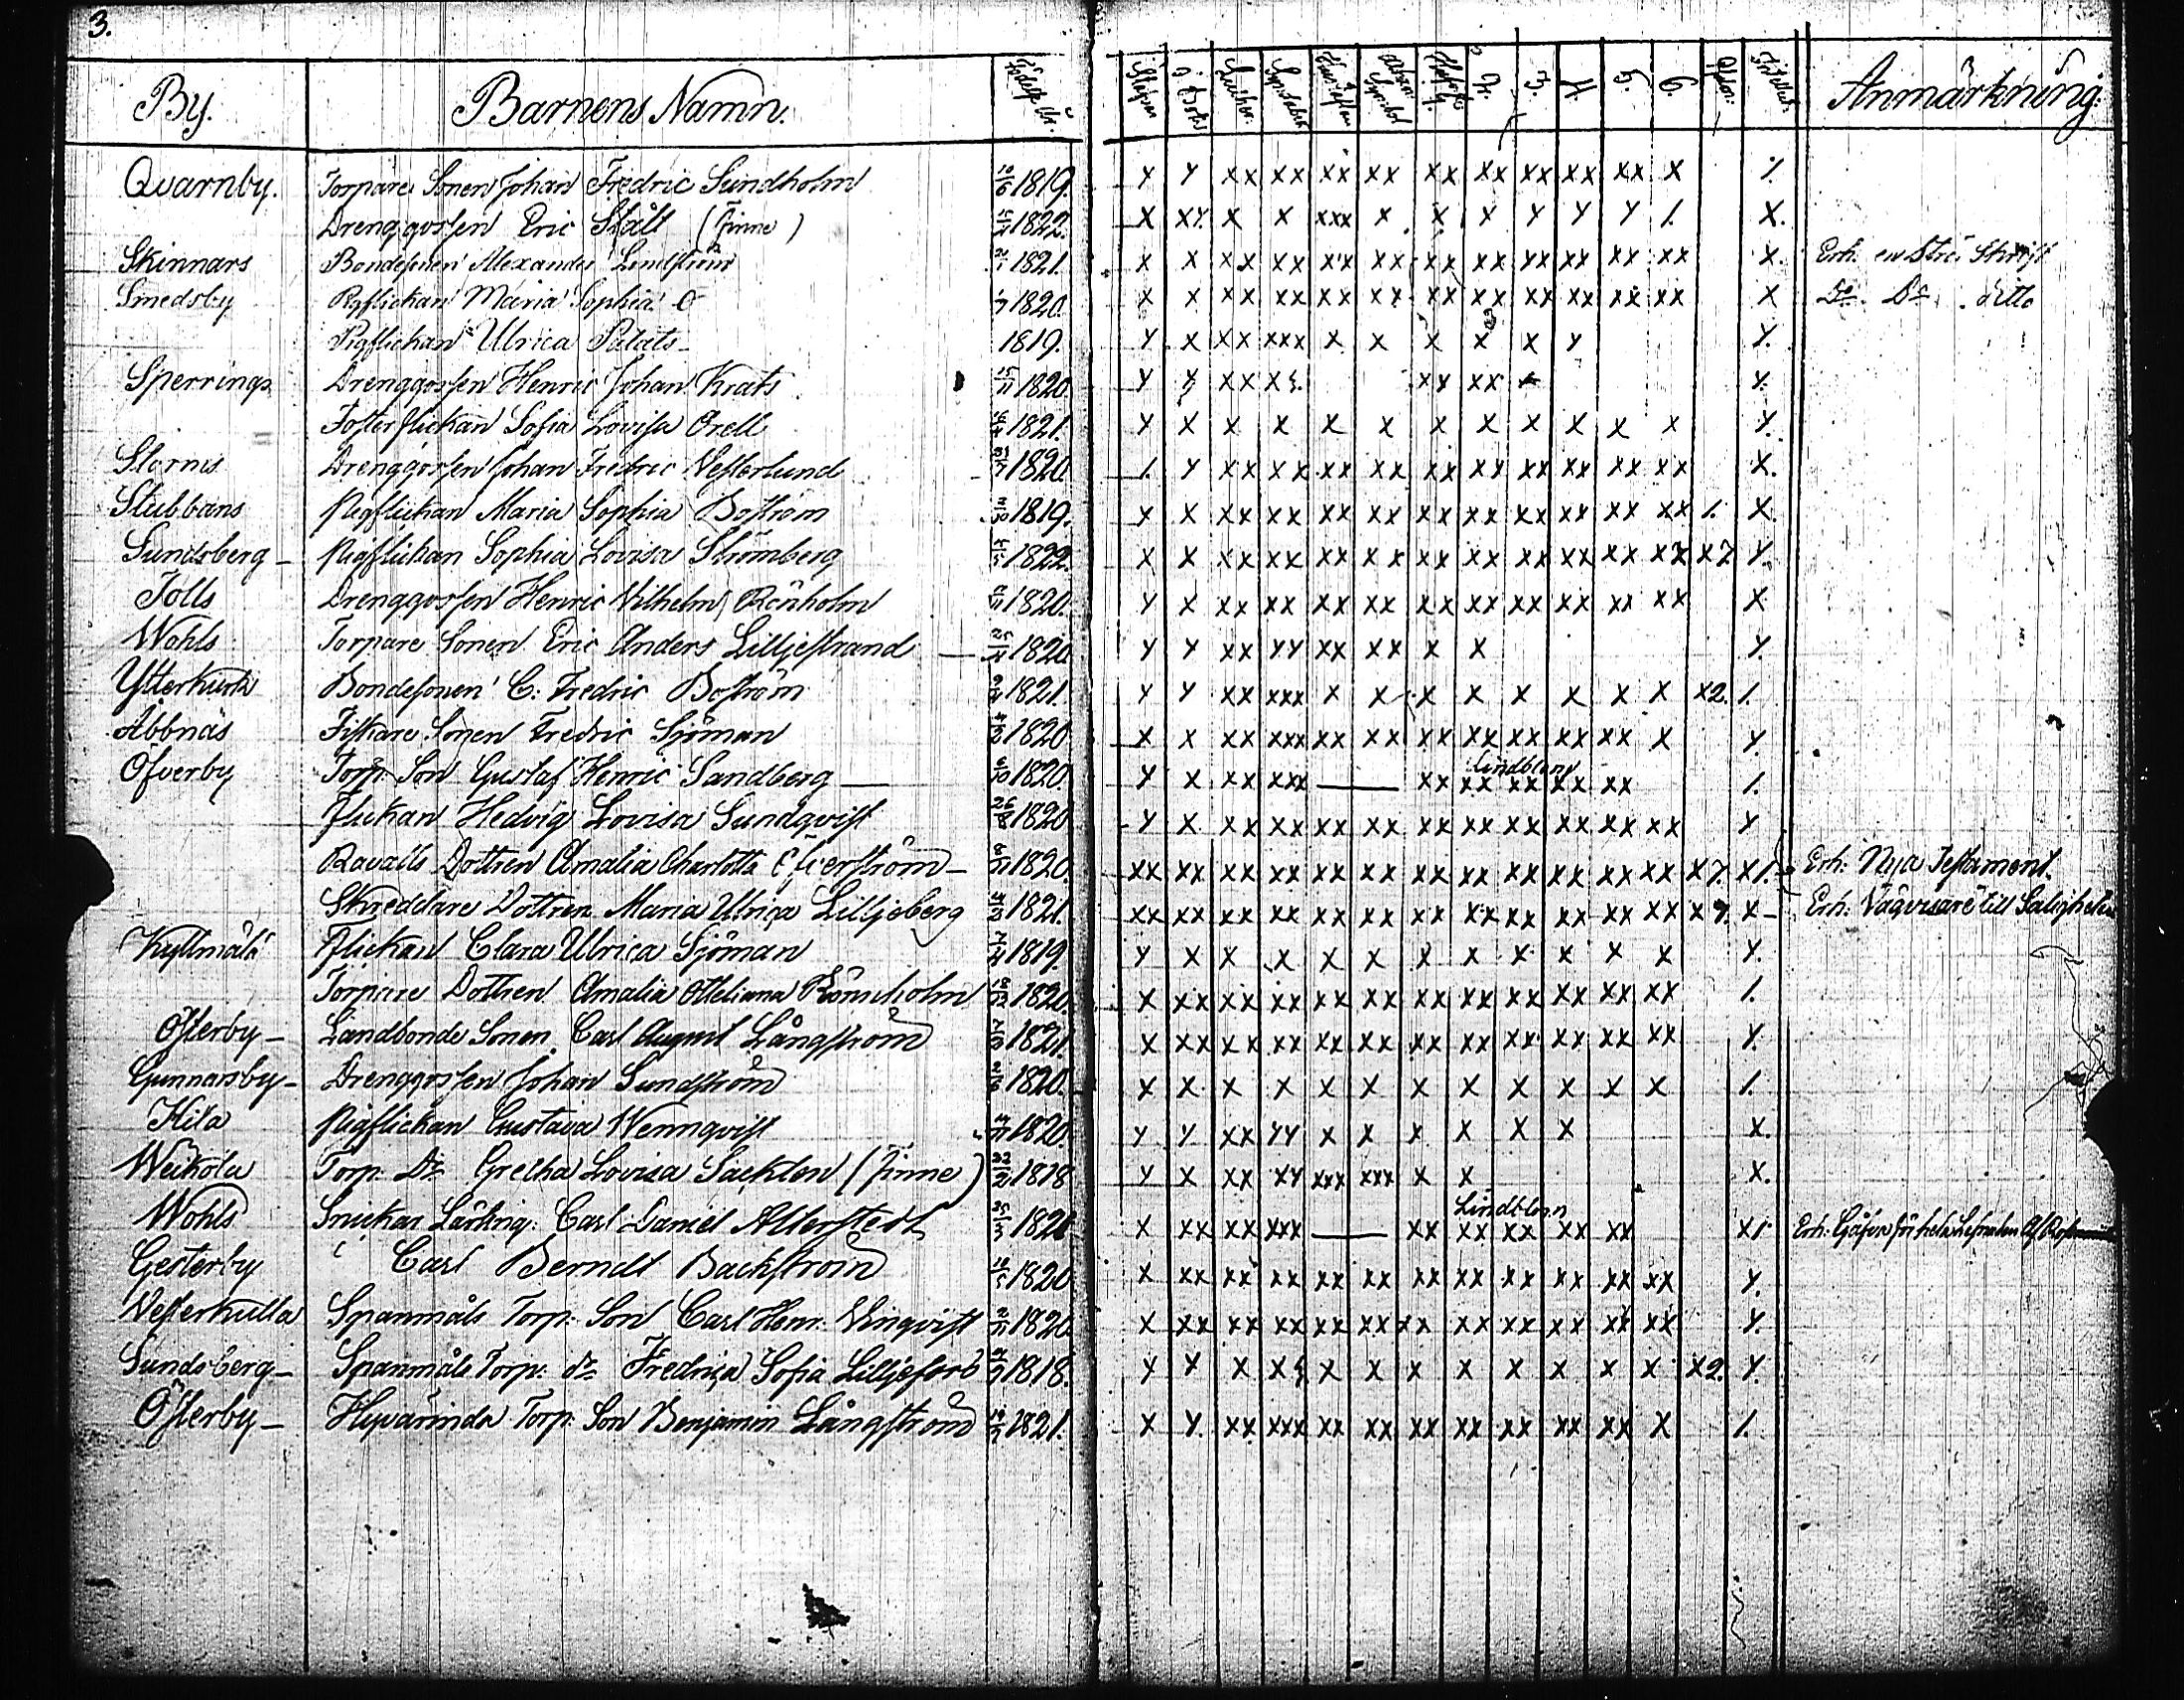 3.
By. Barnens Namn. Födelse År. Stafvar i Bok Luther. Sp. Tabell Hustaflan Athan: Symbol 1. 2. 3. 4. 5. 6. Anmärkning:
Qvarnby. Torpare Sonen Johan Fredric Sundholm 10/6 1819. x x xx xx xx xx xx xx xx xx xx x
Drenggossen Eric Ståll (Finne) 1822. x xx x x xxx x x x x x x /. x.
Skinnars Bondesonen Alexander Lindström 1821. x x xx xx xx xx xx xx xx xx xx xx x. Erh: en Skrift
Smedsby Pigflickan Maria Sophia 1820. x x xx xx xx xx xx xx xx xx xx xx x Do Do ditto
Pigflickan Ulrica Palats 1819. x x xx xxx x x x x x x x.
Sperrings Drenggossen Henric Johan Krats 15/11 1820. x x xx x xx xx x x.
Fosterflickan Sofia Lovisa Orell 1821. x x x x x x x x x x x x x.
Storms Drenggossen Johan Fredric Vesterlund 1820. /. x xx xx xx xx xx xx xx xx xx xx x.
Stubbans Pigflickan Maria Sophia Boström 1819. x x xx xx xx xx xx xx xx xx xx xx 1. x.
Sundsberg – Pigflickan Sophia Lovisa Strömberg 1822. x x xx xx xx xx xx xx xx xx xx xx x7 x.
Tolls Drenggossen Henric Vilhelm Rönholm 1820. x x xx xx xx xx xx xx xx xx xx xx x
Wohls Torpare Sonen Eric Anders Lilljestrand — 1820 x x xx xx xx xx x x x.
Ytterkurk Bondesonen C: Fredric Boström 1821. x x xx xxx x x x x x x x x x2. /.
Åbbnäs Fiskare Sonen Fredric Sjöman 1820 x x xx xxx xx xx xx xx xx xx xx x x
Öfverby Torp: Son Gustaf Henric Sandberg — 6/10 1820. x x xx xxx — xx Lindblom xx xx xx xx /.
Flickan Hedvig Lovisa Sundqvist 1820 x x xx xx xx xx xx xx xx xx xx xx x
Dottren Amalia Charlotta – 1820. xx xx xx xx xx xx xx xx xx xx xx xx x7. x /. Erh: Nya Testament.
Skreddare Dottren Maria Ulrica Lilljeberg 14/3 1821. xx xx xx xx xx xx xx xx xx xx xx xx x7. x – Erh: Vägvisare till Saligheten
Kyllmälä Flickan Clara Ulrica Sjöman 1819. x x x x x x x x x x x x x.
Torpare Dottren Amalia Otteliana Rönnholm 18/12 1820. x xx xx xx xx xx xx xx xx xx xx xx /.
Österby – Landbonde Sonen Carl August Långström 1821. x xx xx xx xx xx xx xx xx xx xx xx x.
Gunnarsby – Drenggossen Johan Sundström 1820. x x x x x x x x x x x x /.
Kila Pigflickan Gustava Wennqvist 1820. x x xx xx x x x x x x x.
Weikola Torp: Dr Gretha Lovisa Sacklen (Finne) 1818 x x xx xx xxx xxx x x x.
Wohls Snickar Lärling: Carl Daniel Allerstedt x xx xx xxx — xx Lindblom xx xx xx xx x
Gesterby Carl Berndt Backström 1820 x xx xx xx xx xx xx xx xx xx xx xx x.
Vesterkulla Spanmåls Torp: Son Carl Henr: Vinqvist 1820 x xx xx xx xx xx xx xx xx xx xx xx x.
Sundsberg – Spanmåls Torp: dr Fredrica Sofia Lilljefors 1818. x x x x x x x x x x x x x2. x.
Österby – Torp: Son Benjamin Långström 1821. x x. xx xxx xx xx xx xx xx xx xx x /.